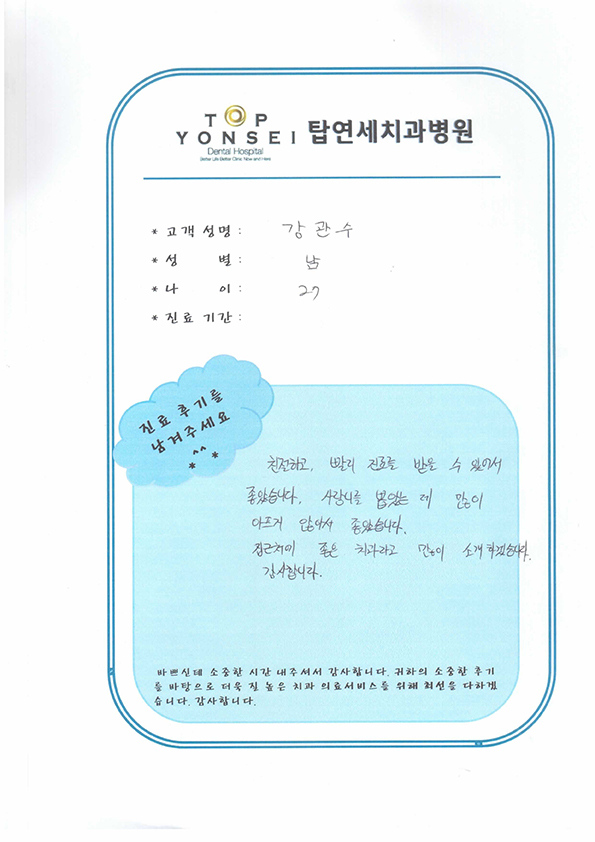 TOP
YONSEI 탑연세치과병원
Dental Hospital
Better Life Better Clinic Now and Here
* 고객 성명 : 강관수
* 성 별 : 남
* 나 이 : 27
* 진료 기간 :
진료 후기를
남겨주세요
^^
* *
친절하고, 빨리 진료를 받을 수 있어서
좋았습니다. 사랑니를 뽑았는 데 많이
아프지 않아서 좋았습니다.
집근처에 좋은 치과라고 많이 소개하겠습니다.
감사합니다.
바쁘신데 소중한 시간 내주셔서 감사합니다. 귀하의 소중한 후기
를 바탕으로 더욱 질 높은 치과 의료서비스를 위해 최선을 다하겠
습니다. 감사합니다.